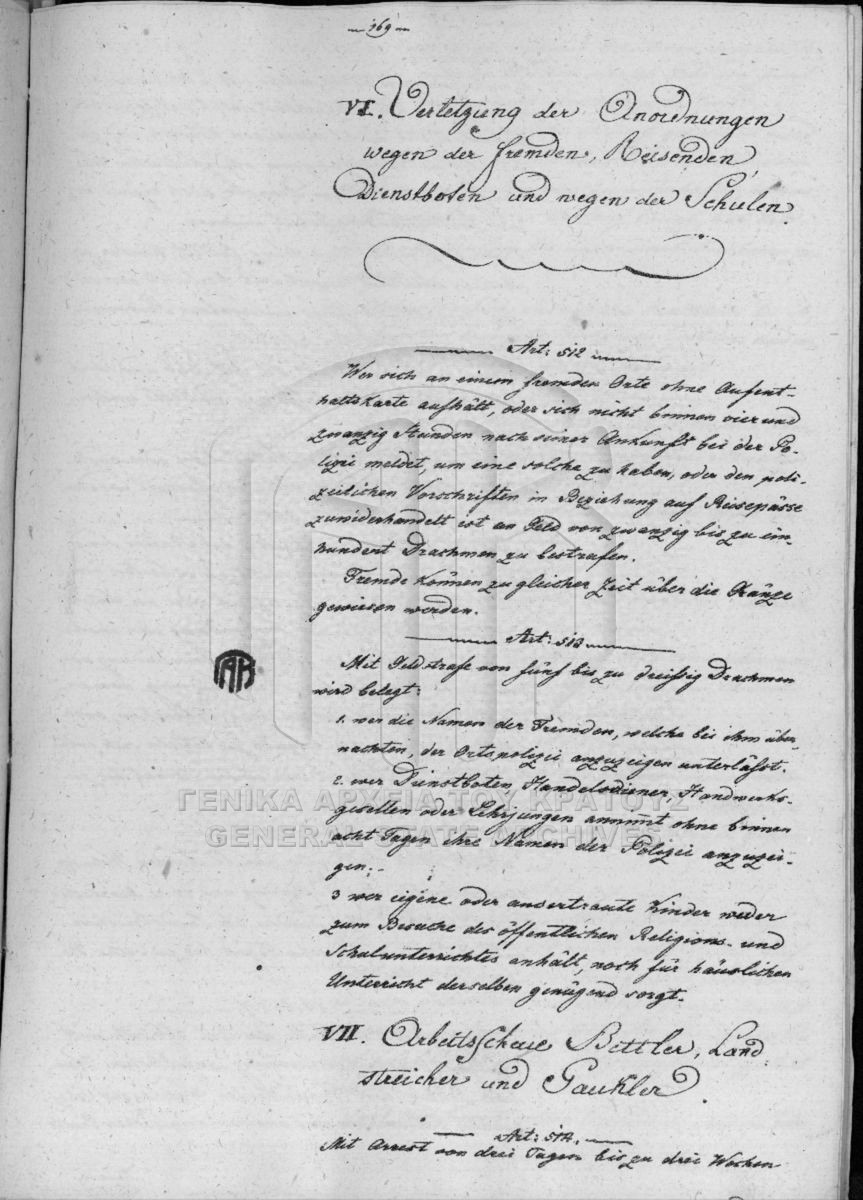 169
VI. Verletzung der Anordnungen
wegen der fremden, Reisenden,
Dienstboten und wegen der Schulen.
Art: 512
Wer sich an einem fremden Orte ohne Aufent-
haltskarte aufhält, oder sich nicht binnen vier und
zwanzig Stunden nach seiner Ankunft bei der Po-
lizei meldet, um eine solche zu haben, oder den poli-
zeilichen Vorschriften in Beziehung auf Reisepässe
zuwiderhandelt ist an Geld von zwanzig bis zu ein-
hundert Drachmen zu bestrafen.
Fremde können zu gleicher Zeit über die Gränze
gewiesen werden.
Art: 513
Mit Geldstrafe von fünf bis zu dreissig Drachmen
wird belegt:
1. wer die Namen der Fremden, welche bei ihm über-
nachten, der Ortspolizei anzuzeigen unterlässt.
2. wer Dienstboten, Handelsdiener, Handwerks-
gesellen oder Lehrjungen annimmt ohne binnen
acht Tagen ihre Namen der Polizei anzuzei-
gen;-
3 wer eigene oder anvertraute Kinder weder
zum Besuche des öffentlichen Religions- und
Schulunterrichtes anhält, noch für häuslichen
Unterricht derselben genügend sorgt.
VII. Arbeitsscheue Bettler, Land
streicher und Gaukler.
Art: 514.
Mit Arrest von drei Tagen bis zu drei Wochen
ΓΑΚ
ΓΕΝΙΚΑ ΑΡΧΕΙΑ ΤΟΥ ΚΡΑΤΟΥΣ
GENERAL STATE ARCHIVES